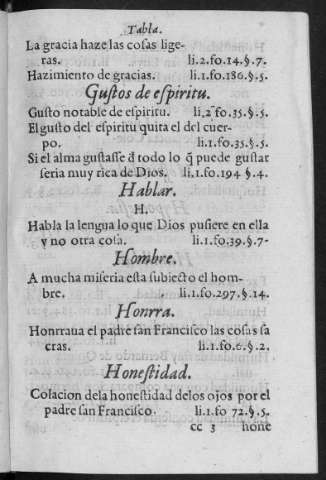 Tabla.
La gracia haze las cosas lige-
ras. li.2.fo.14.§.7.
Hazimiento de gracias. li.1.fo.186.§.5.
Gustos de espiritu.
Gusto notable de espiritu. li.2 fo.35.§.5.
El gusto del espiritu quita el del cuer-
po. li.1.fo.35.§.5.
Si el alma gustasse d̃ todo lo q̃ puede gustar
seria muy rica de Dios. li.1.fo.194 §.4.
Hablar.
H.
Habla la lengua lo que Dios pusiere en ella
y no otra cosa. li.1.fo.39.§.7-
Hombre.
A mucha miseria esta subiecto el hom-
bre. li.1.fo.297.§.14.
Honrra.
Honrraua el padre san Francisco las cosas sa
cras. li.1.fo.6.§.2.
Honestidad.
Colacion dela honestidad delos ojos por el
padre san Francisco. li.1.fo 72.§.5.
cc 3 hone